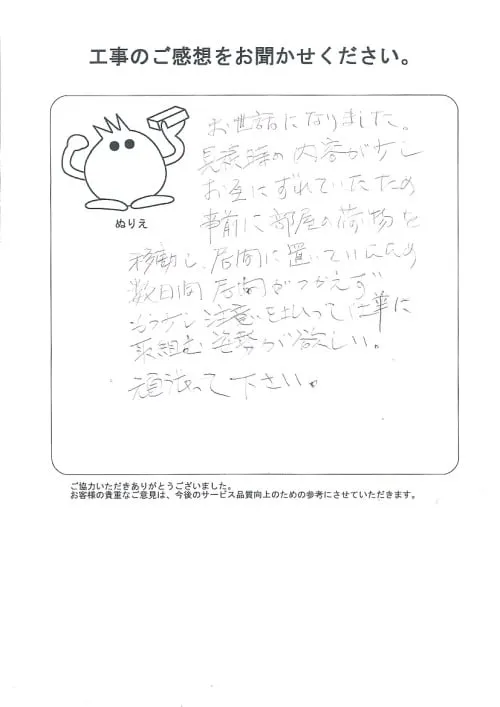 工事のご感想をお聞かせください。
お世話になりました。
見積時の内容が少し
お互にずれていたため
事前に部屋の荷物を
移動し、居間に置いていたため
数日間居間がつかえず
もう少し注意を払って仕事に
取組む姿勢が欲しい。
頑張って下さい。
ぬりえ
ご協力いただきありがとうございました。
お客様の貴重なご意見は、今後のサービス品質向上のための参考にさせていただきます。